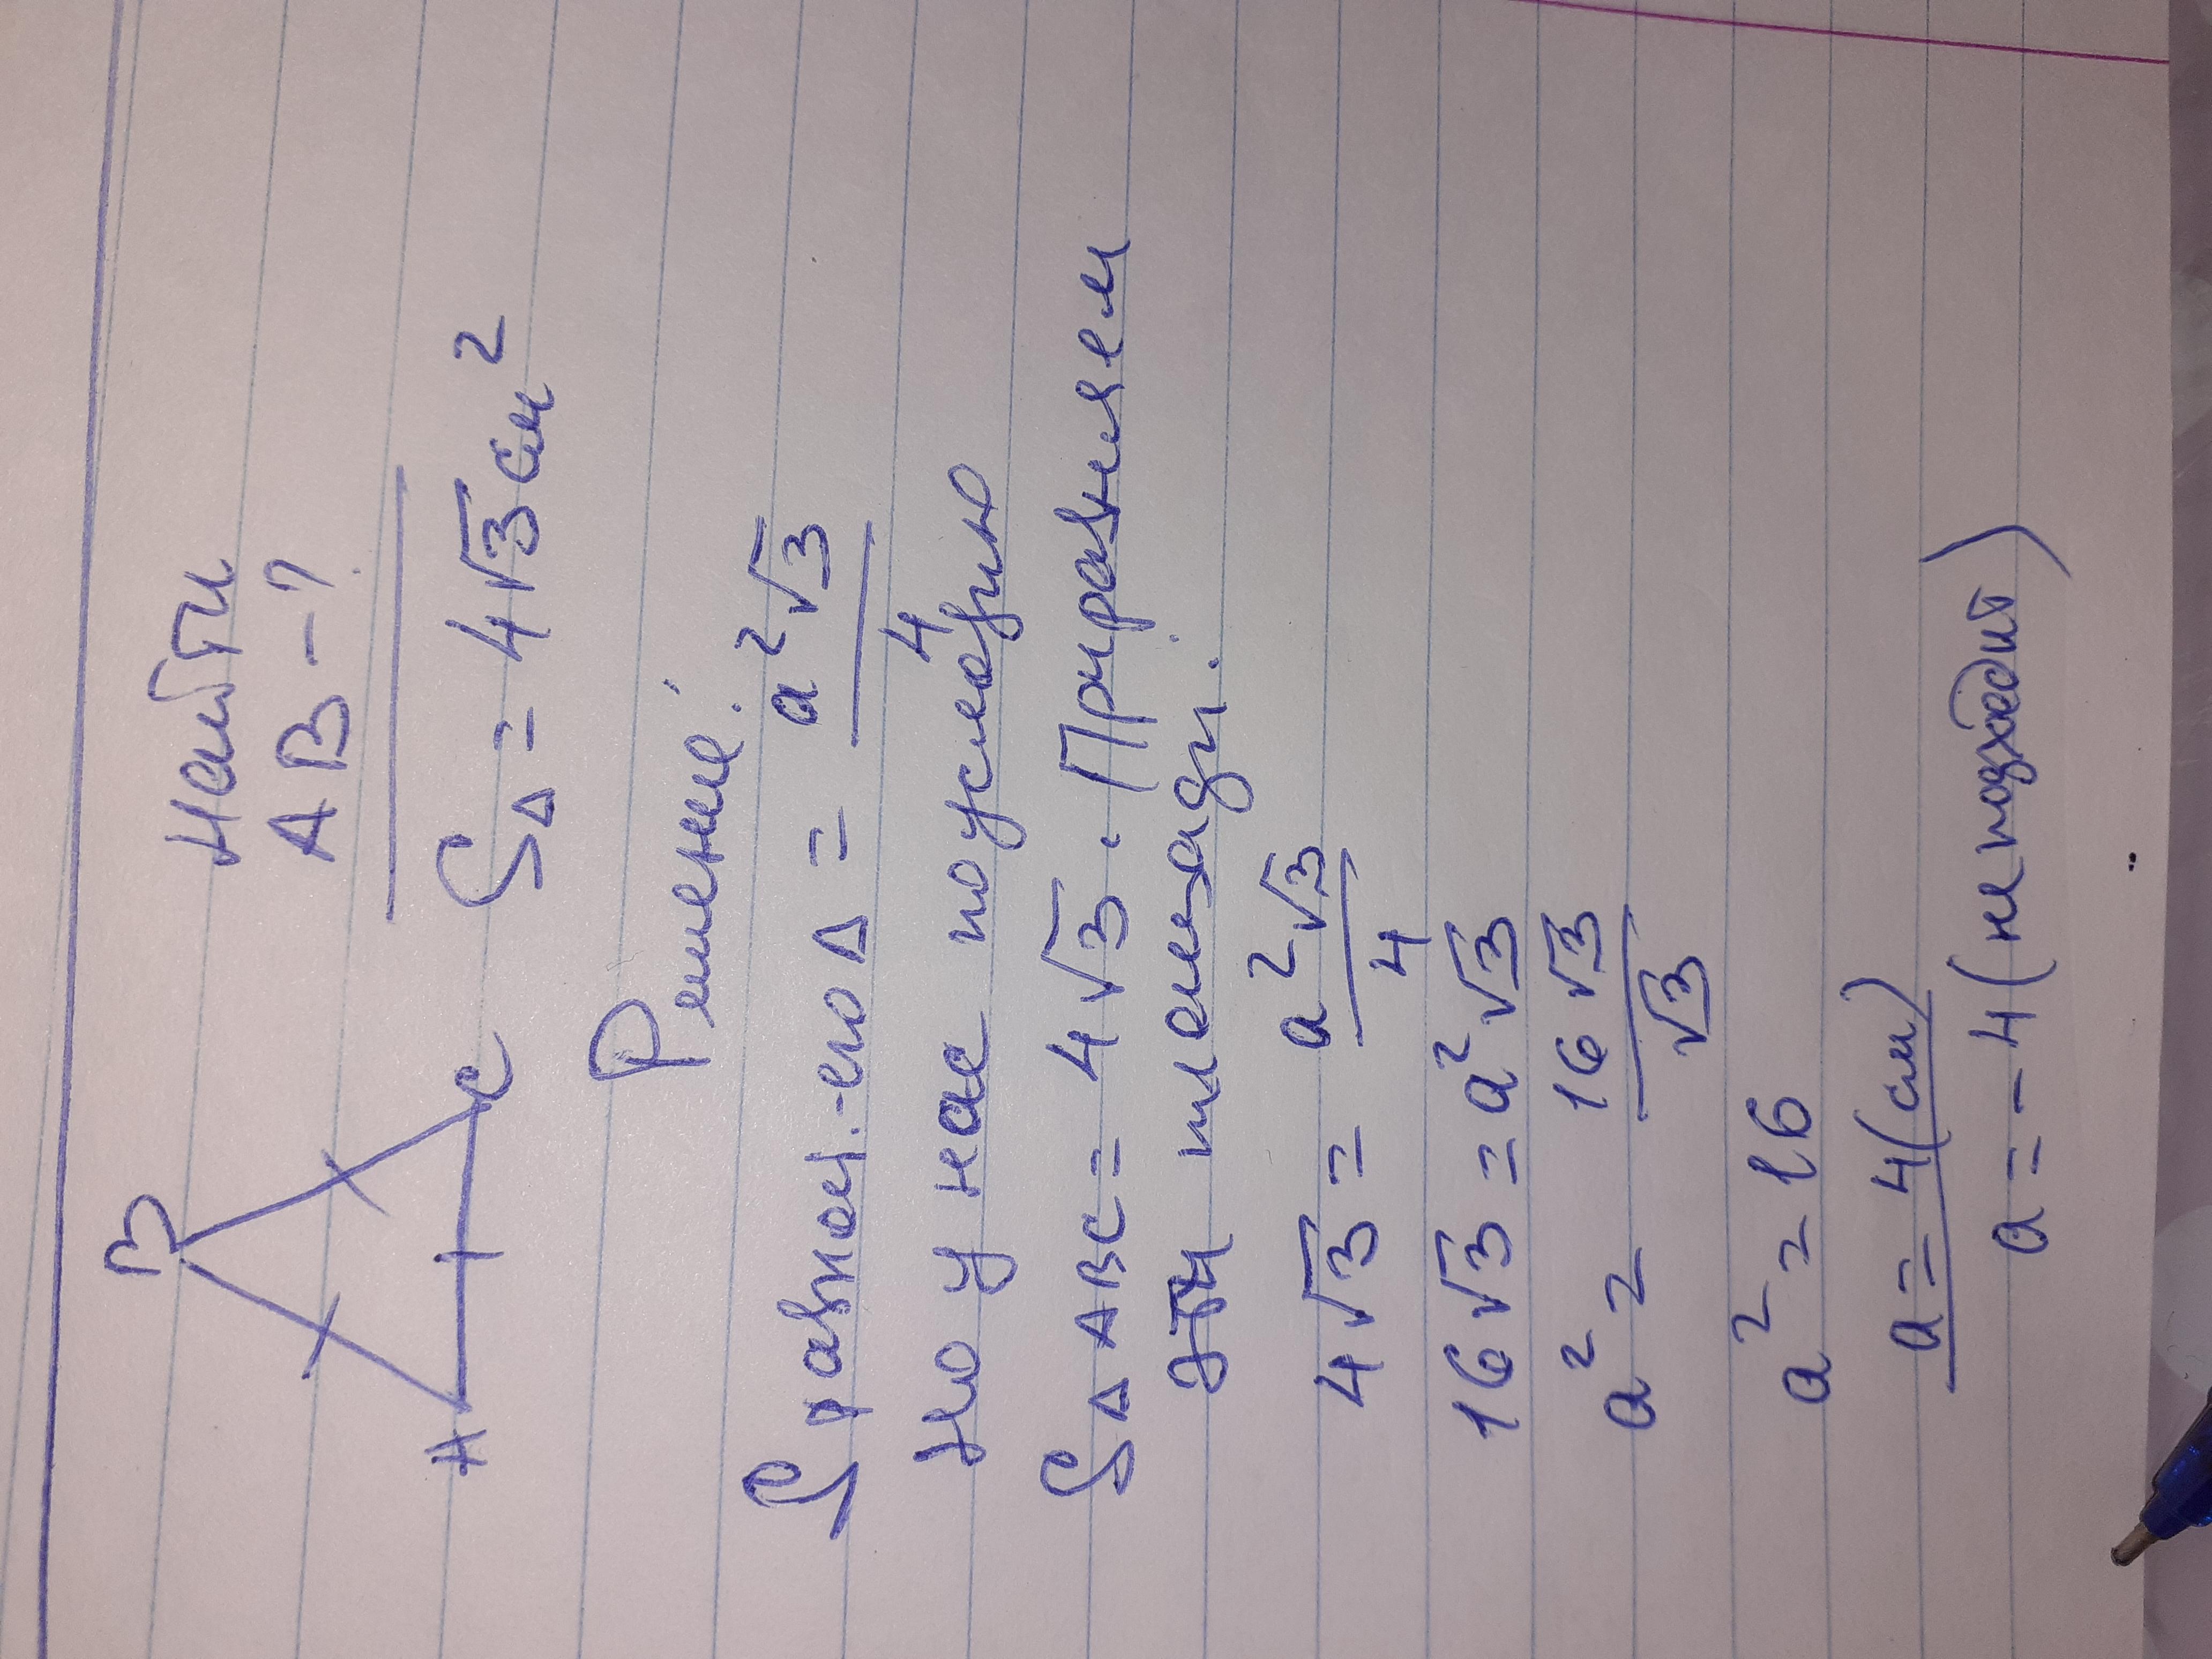 B
A
C
Найти
AB - ?
S△ = 4√3 см²
Решение:
S равност.-его △ = a²√3 / 4
Но у нас по условию
S△ABC = 4√3. Приравняем
эти площади:
4√3 = a²√3 / 4
16√3 = a²√3
a² = 16√3 / √3
a² = 16
a = 4 (см)
a = -4 (не подходит)